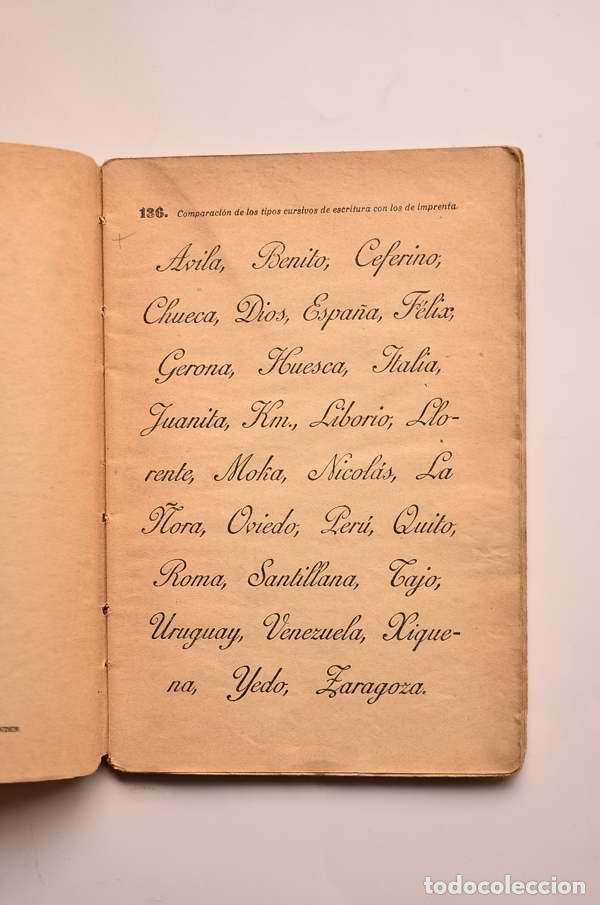 136. Comparación de los tipos cursivos de escritura con los de imprenta
Avila, Benito, Ceferino,
Chueca, Dios, España, Félix,
Gerona, Huesca, Italia,
Juanita, Km., Liborio, Llo-
rente, Moka, Nicolás, La
Ñora, Oviedo, Perú, Quito,
Roma, Santillana, Tajo,
Uruguay, Venezuela, Xique-
na, Yedo, Zaragoza.
todocoleccion